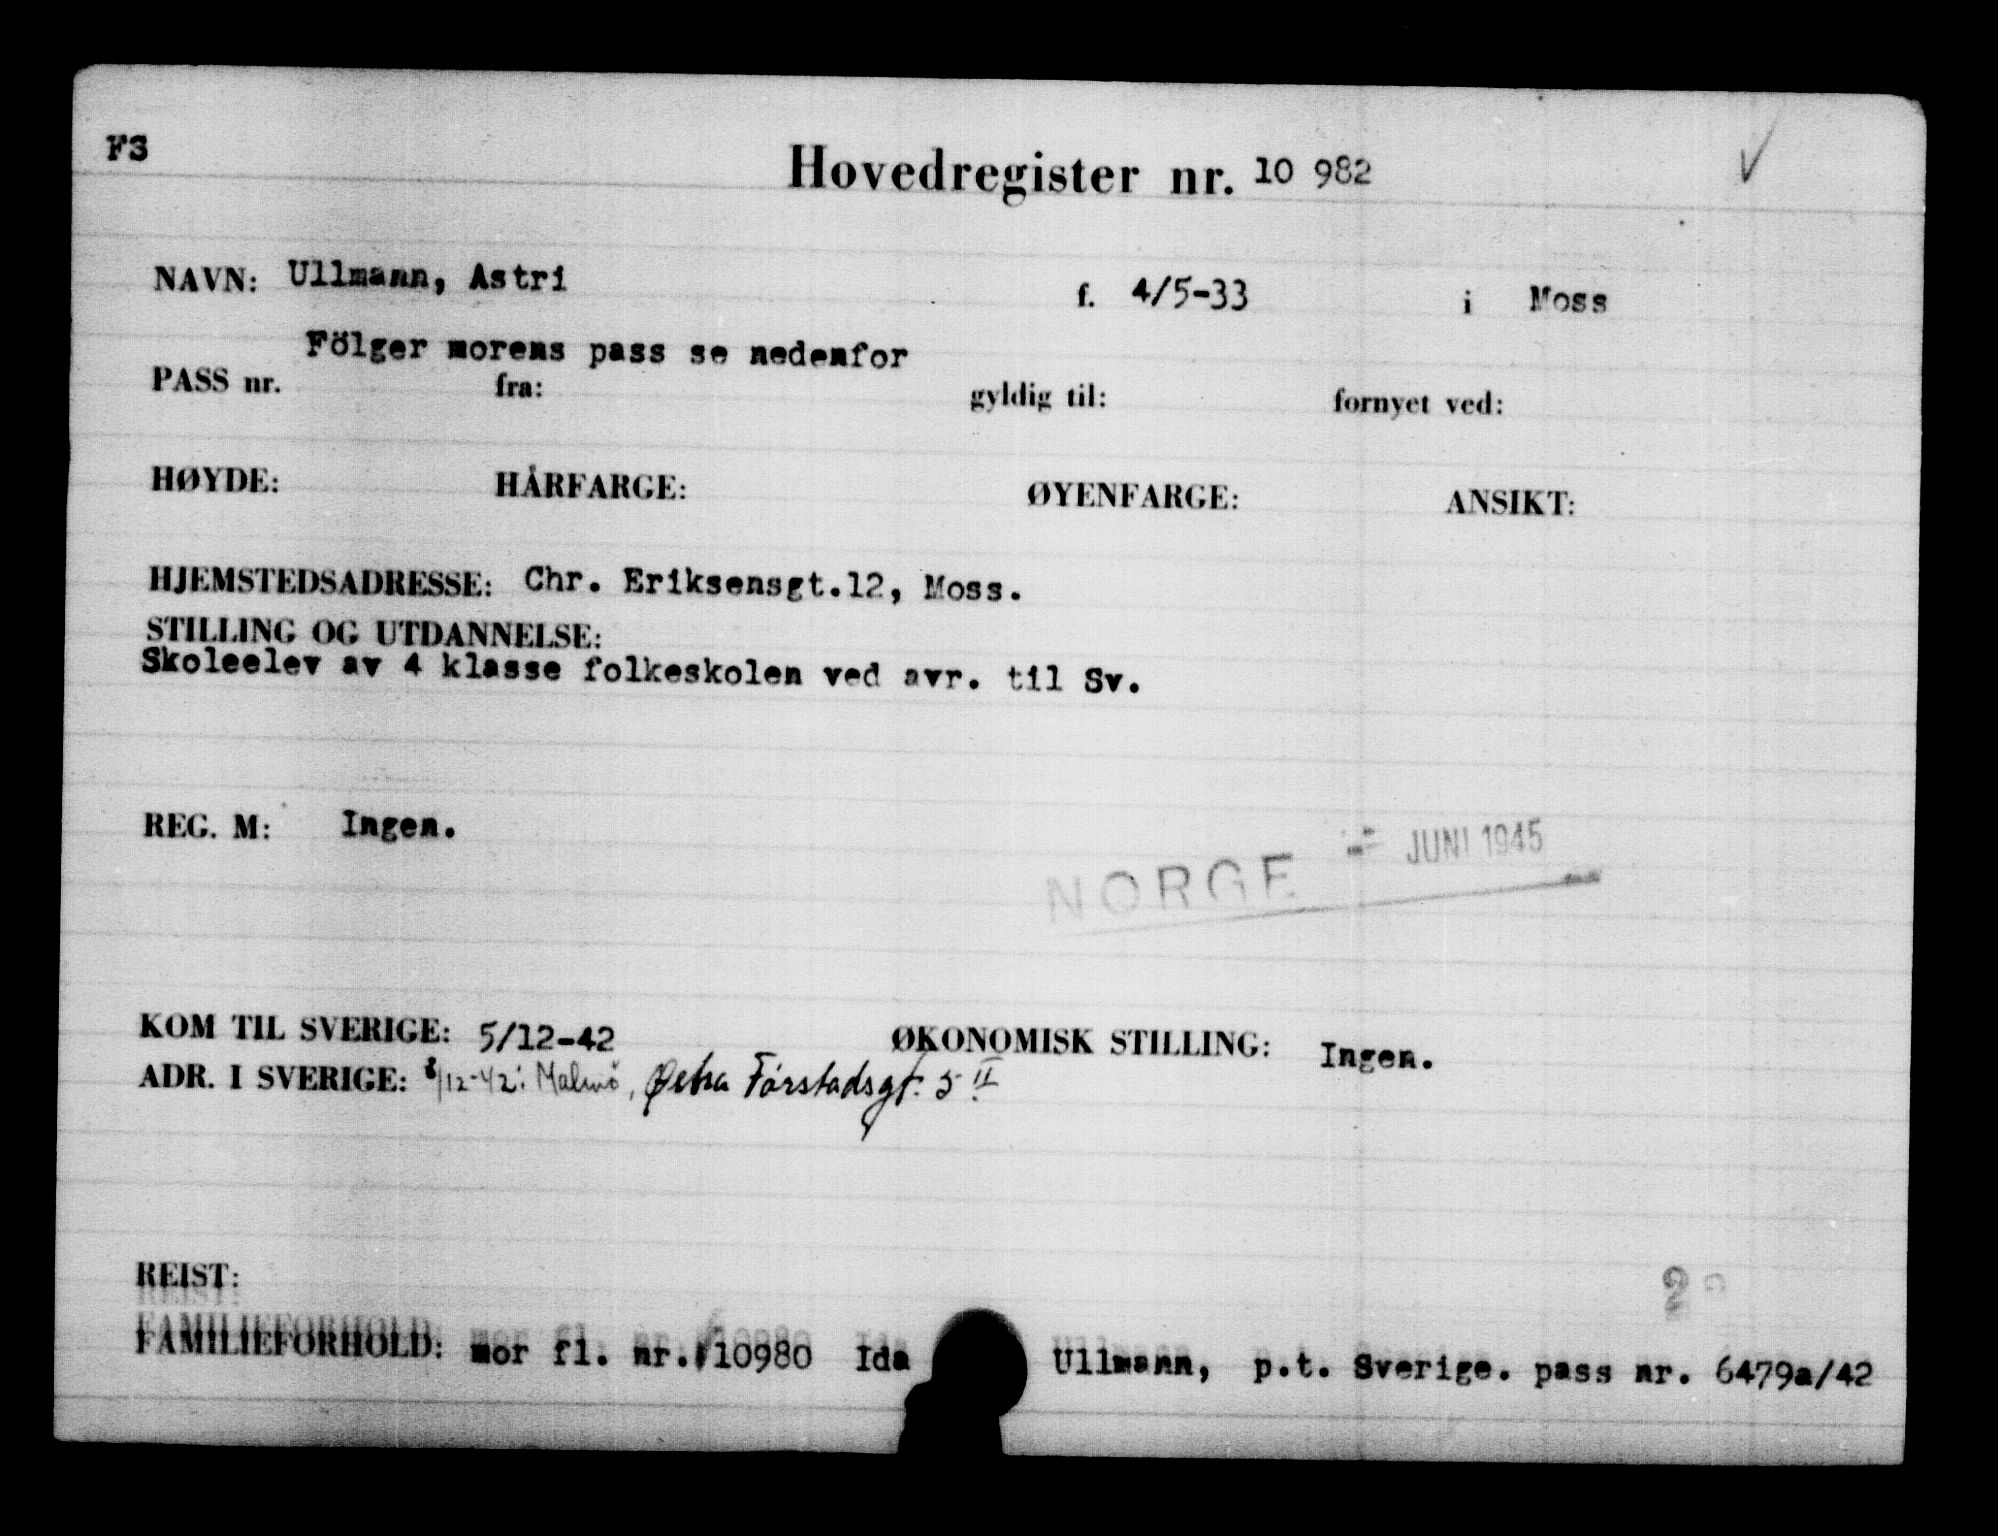 F3
Hovedregister nr. 10 982
NAVN: Ullmann, Astri f. 4/5-33 i Moss
Fölger morens pass se nedenfor
PASS nr. fra: gyldig til: fornyet ved:
HØYDE: HÅRFARGE: ØYENFARGE: ANSIKT:
HJEMSTEDSADRESSE: Chr. Eriksensgt.12, Moss.
STILLING OG UTDANNELSE:
Skoleelev av 4 klasse folkeskolen ved avr. til Sv.
REG. M: Ingen.
NORGE JUNI 1945
KOM TIL SVERIGE: 5/12-42 ØKONOMISK STILLING: Ingen.
ADR. I SVERIGE: 8/12-42: Malmö, Østra Förstadsgt. 5 II
REIST:
2
FAMILIEFORHOLD: mor fl. nr. 10980 Ida Ullmann, p.t. Sverige. pass nr. 6479a/42